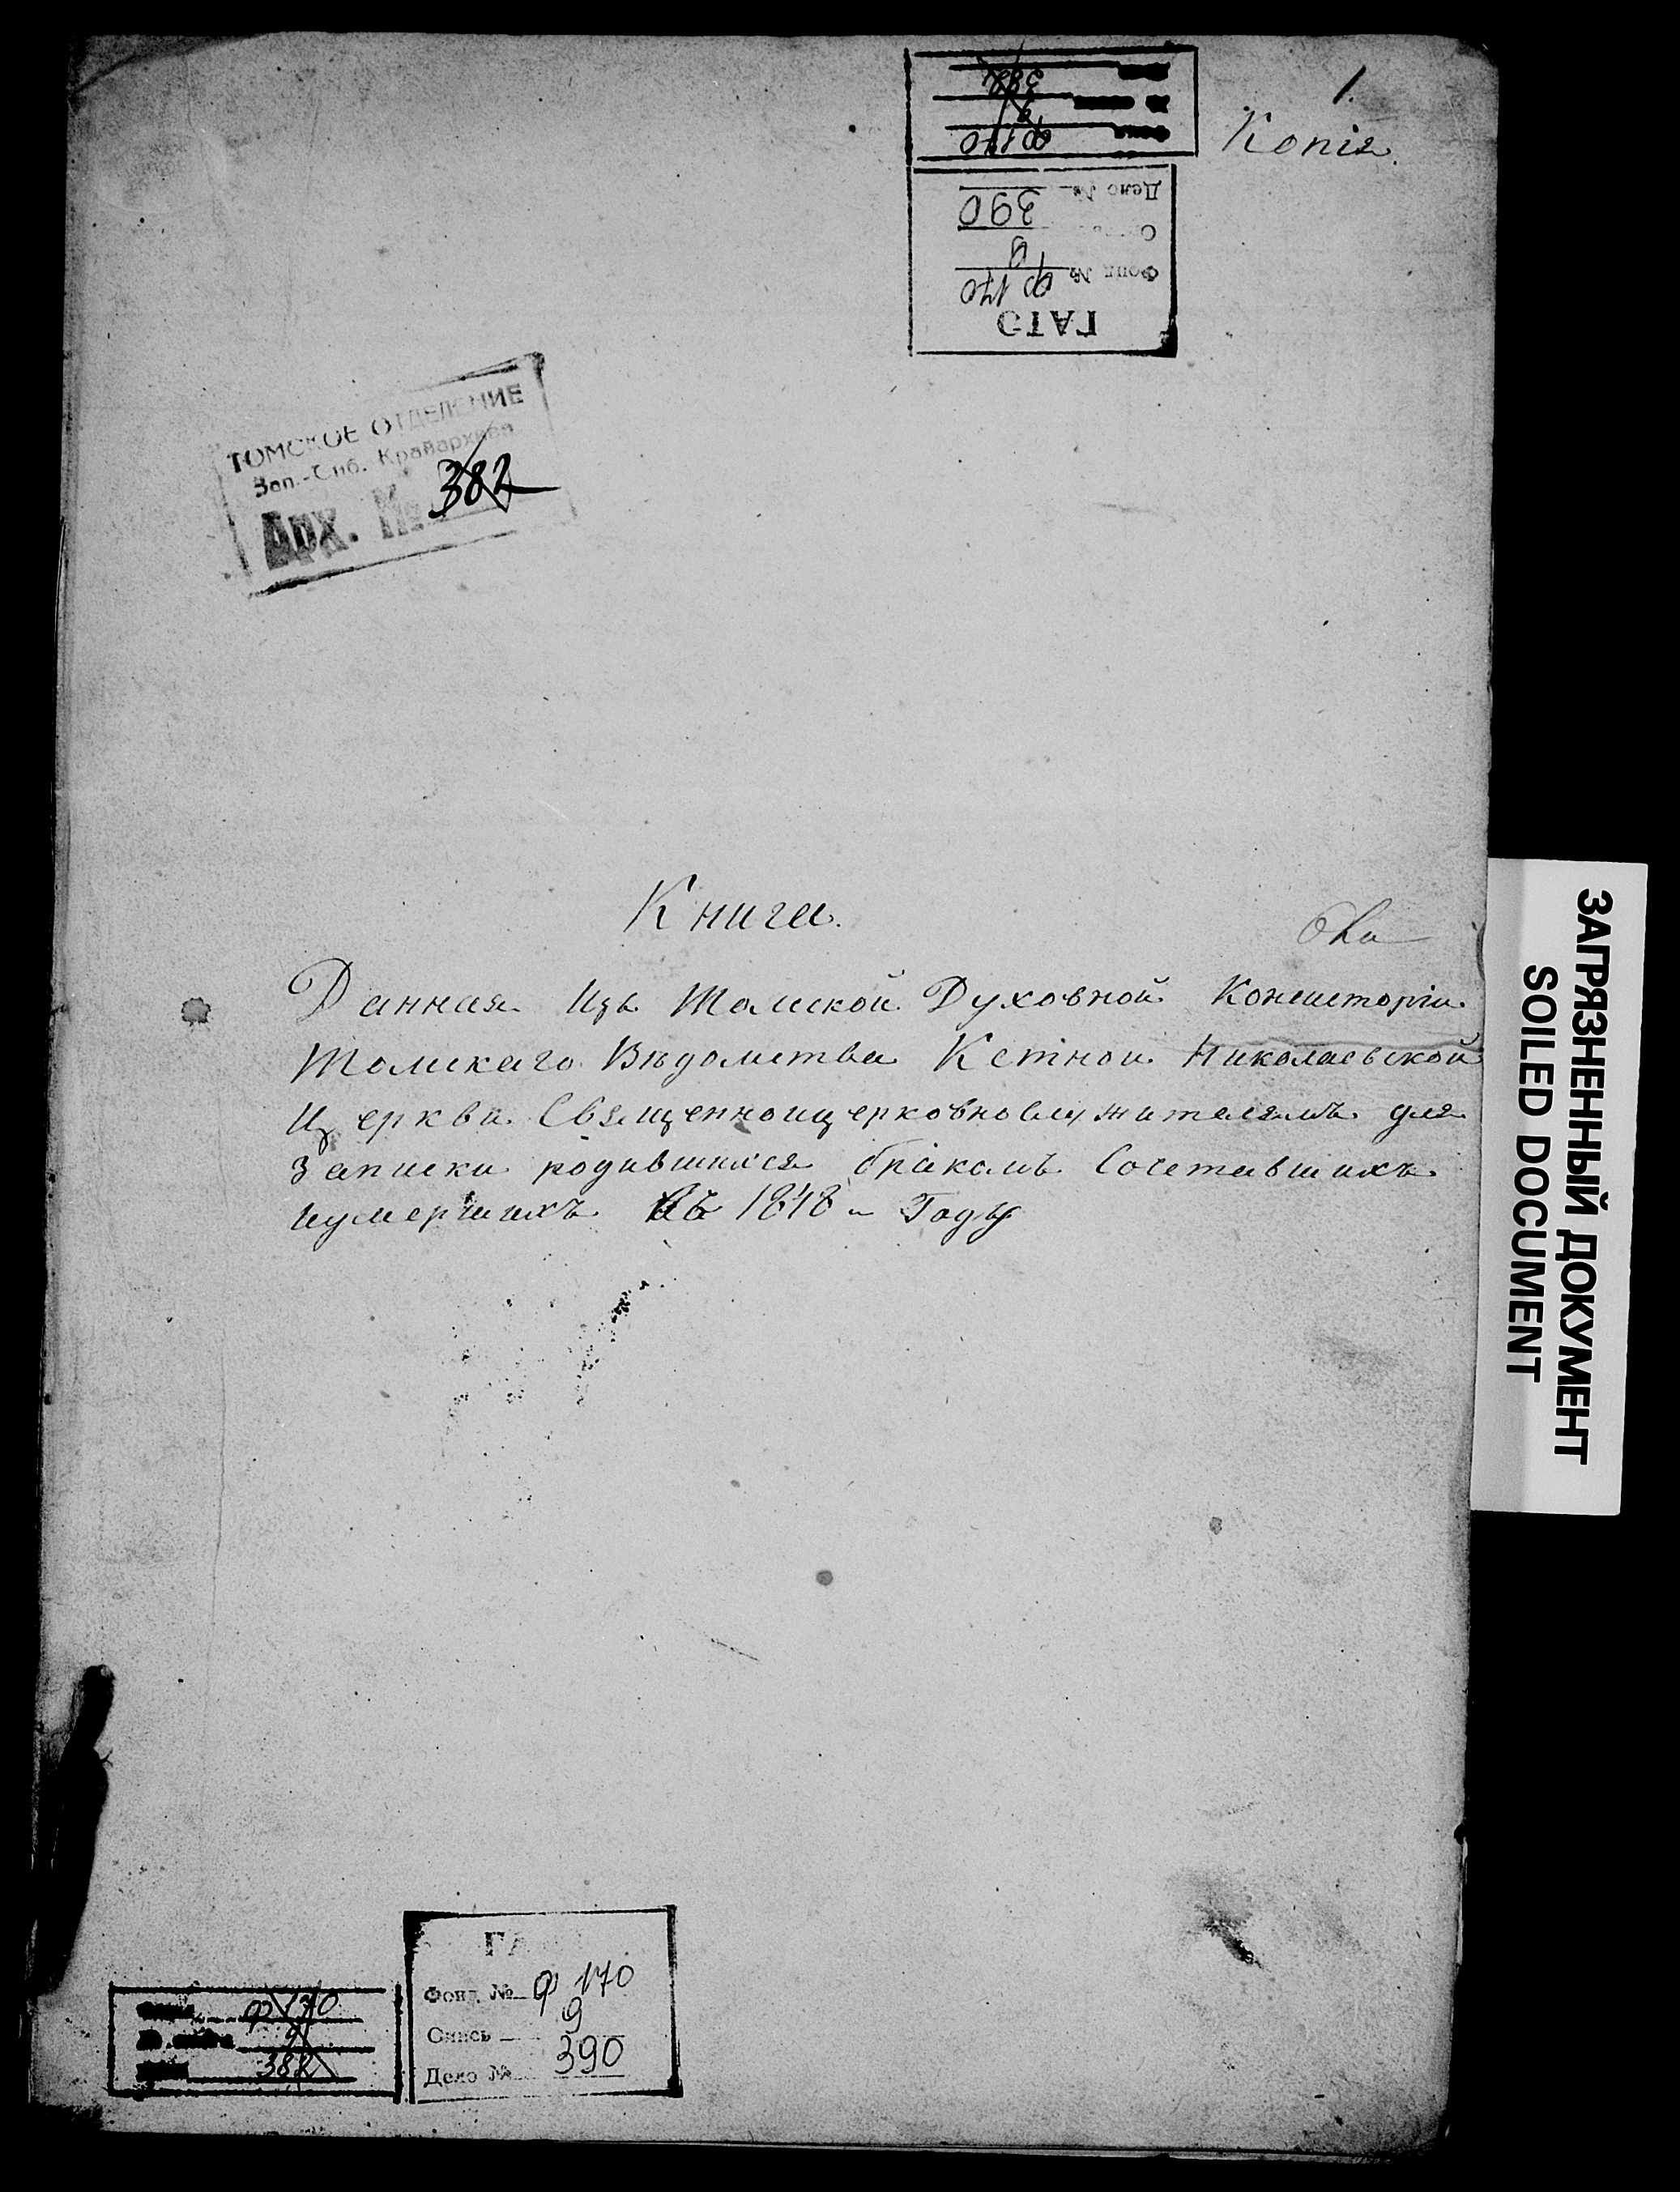 1.
Копія.
382
Ф 170
Дело № 390
9
Фонд № Ф 170
ГАТО
ТОМСКОЕ ОТДЕЛЕНИЕ
Зап.-Сиб. Крайархива
Арх. № 382
Книга.
Данная Изъ Томской Духовной Консисторіи
Томскаго Вѣдомства Кетной Николаевской
Церкви Священноицерковнослужителямъ для
Записки родившихся бракомъ Сочетавшихъ
иумершихъ въ 1848 Году
ЗАГРЯЗНЕННЫЙ ДОКУМЕНТ
SOILED DOCUMENT
Ф 170
9
382
Фонд № Ф 170
Опись 9
Дело № 390